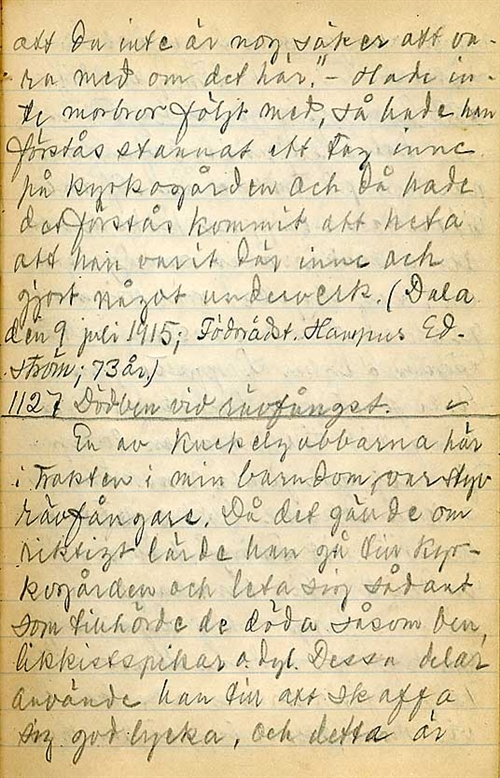 att du inte är nog säker att va-
ra med om det här." - Hade in-
te morbror följt med, så hade han
förstås stannat ett tag inne
på kyrkogården och då hade
det förstås kommit att heta
att han varit där inne och
gjort något underverk. (Dala
den 9 juli 1915; Född rådst. Hampus Ed-
ström; 73 år.)
1127 Dödben vid rävfångst.
En av knekelgubbarna här
i trakten i min barndom, var styv
rävfångare. Då det gällde om
riktigt lärde han gå till kyr-
kogården och leta sig sådant
som tillhörde de döda såsom ben,
likkistspikar o. dyl. Dessa delar
använde han till att skaffa
sig god lycka, och detta är